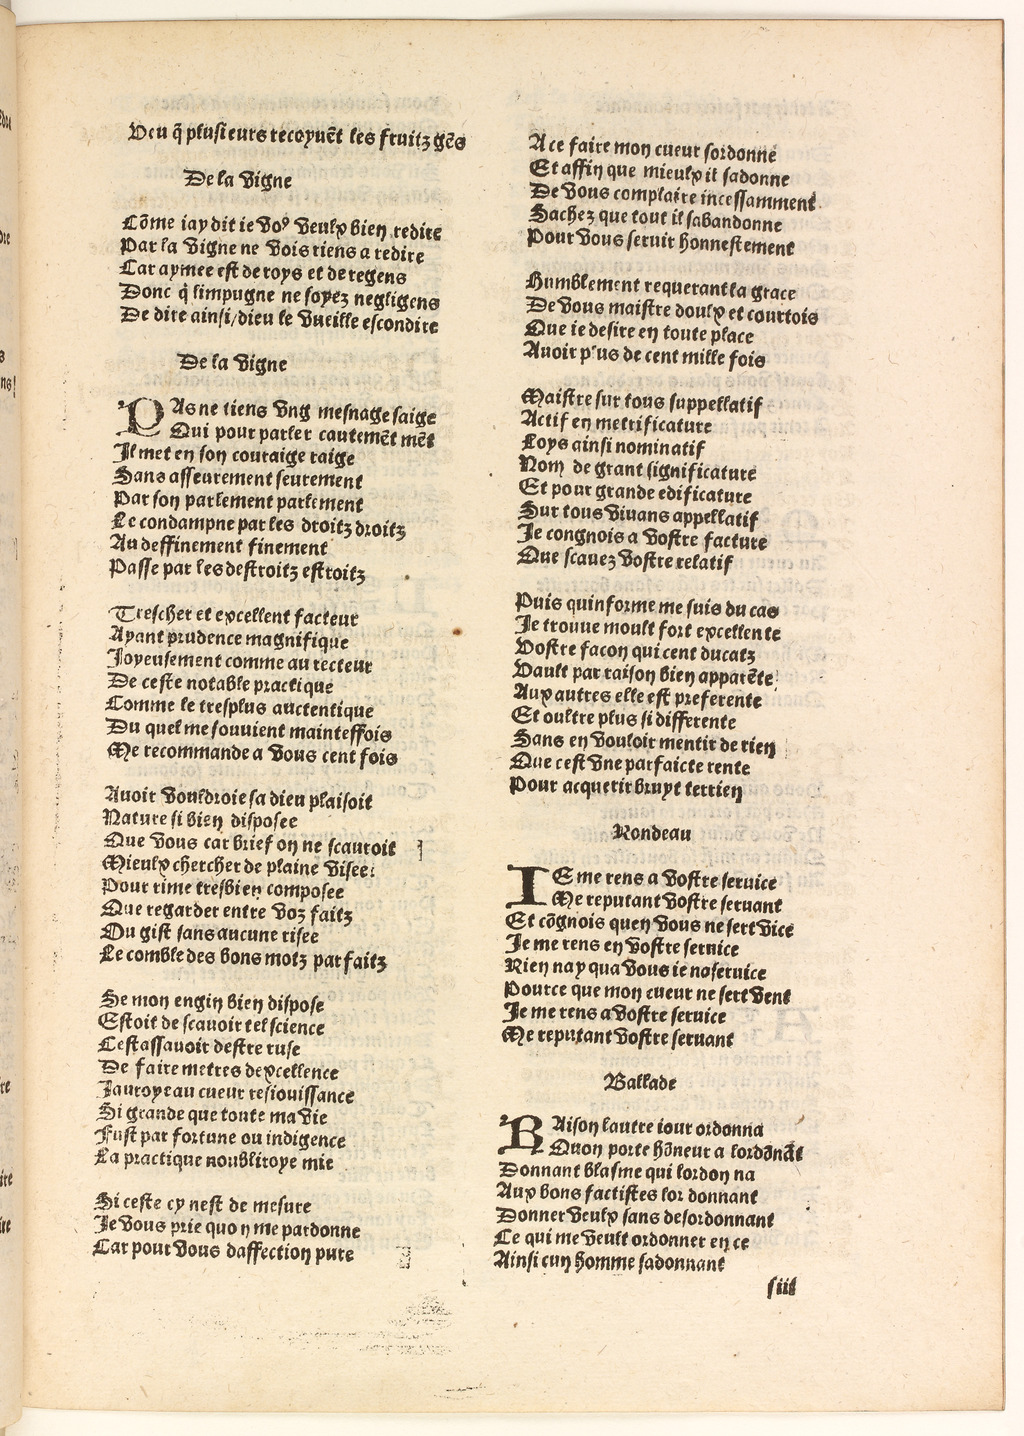 Veu q̃ plusieurs recoyuẽt les fruitz gẽs
De la vigne
Cõme iay dit ie voꝰ veulx bien redire
Par la vigne ne vois riens a redire
Car aymee est de roys et de regens
Donc q̃ limpugne ne soyez negligens
De dire ainsi/dieu le vueille escondire
De la vigne
PAs ne tiens vng mesnage saige
Qui pour parler cautemẽt mẽt
Il met en son couraige raige
Sans asseurement seurement
Par son parlement parlement
Le condampne par les droitz droitz
Au deffinement finement
Passe par les destroitz estroitz
Trescher et excellent facteur
Ayant prudence magnifique
Joyeusement comme au recteur
De ceste notable practique
Comme le tresplus auctentique
Du quel me souuient mainteffois
Me recommande a vous cent fois
Auoir vouldroie sa dieu plaisoit
Nature si bien disposee
Que vous car brief on ne scauroit
Mieulx chercher de plaine visee:
Pour rime tresbien composee
Que regarder entre voz faitz
Ou gist sans aucune risee
Le comble des bons motz parfaitz
Se mon engin bien dispose
Estoit de scauoir tel science
Cest assauoir destre ruse
De faire metres dexcellence
Jauroye au cueur resiouissance
Si grande que toute ma vie
Fust par fortune ou indigence
La practique noublitoye mie
Si ceste cy nest de mesure
Je vous prie quon me pardonne
Car pour vous daffection pure
A ce faire mon cueur sordonne
Et affin que mieulx il sadonne
De vous complaire incessamment
Sachez que tout il sabandonne
Pour vous seruir honnestement
Humblement requerant la grace
De vous maistre doulx et courtois
Que ie desire en toute place
Auoir plus de cent mille fois
Maistre sur tous suppellatif
Actif en metrificature
Loys ainsi nominatif
Nom de grant significature
Et pour grande edificature
Sur tous viuans appellatif
Je congnois a vostre facture
Que scauez vostre relatif
Puis quinforme me suis du cas
Je trouue moult fort excellente
Vostre facon qui cent ducatz
Vault par raison bien apparẽte
Aux autres elle est preferente
Et oultre plus si differente
Sans en vouloir mentir de rien
Que cest vne parfaicte rente
Pour acquerir bruyt terrien
Rondeau
IE me rens a vostre seruice
Me reputant vostre seruant
Et cõgnois quen vous ne sert vice
Je me rens en vostre seruice
Rien nay qua vous ie noseruice
Pource que mon cueur ne sert vent
Je me rens a vostre seruice
Me reputant vostre seruant
Ballade
RAison lautre iour ordonna
Quon porte hõneur a lordõnãt
Donnant blasme qui lordon na
Aux bons factistes lor donnant
Donner veulx sans desordonnant
Ce qui me veult ordonner en ce
Ainsi cun homme sadonnant
siii